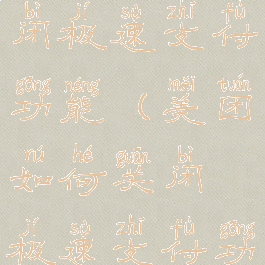 bì jí sù zhī fù
闭极速支付
gōng néng měi tuán
功能（美团
rú hé guān bì
如何关闭
jí sù zhī fù gōng
极速支付功